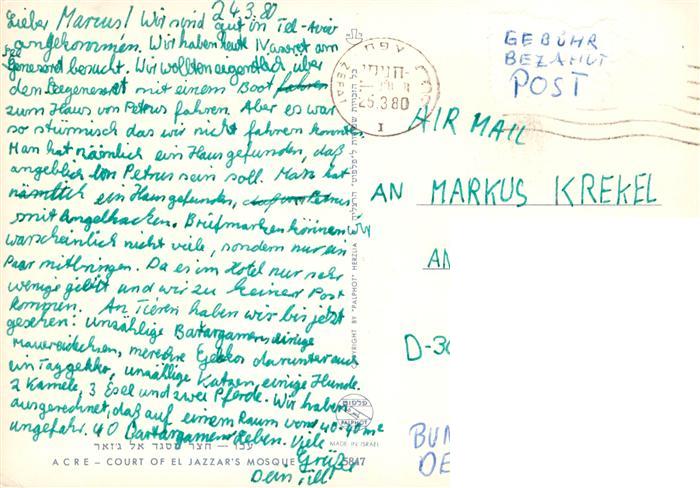 24.3.80
Lieber Marcus! Wir sind gut in Tel-Aviv
angekommen. Wir haben heute Nazaret am
See
Genezaret besucht. Wir wollten eigentlich über
den Seegenezaret mit einem Boot fahren
zum Haus von Petrus fahren. Aber es war
so stürmisch das wir nicht fahren konnten
Man hat nämlich ein Haus gefunden, daß
angeblich von Petrus sein soll. Man hat
nämlich ein Haus gefunden,
mit Angelhacken. Briefmarken können wir
warscheinlich nicht viele, sondern nur ein
Paar mitbringen. Da es im Hotel nur sehr
wenige giebt und wir zu keiner Post
kommen. An Tieren haben wir bis jetzt
gesehen: unzählige Bartargamen, einige
Mauereidechsen, merere Gekkos darunter auch
ein Taggekko, unzällige Katzen, einige Hunde.
2 Kamele, 3 Esel und zwei Pferde. Wir haben
ausgerechnet, daß auf einem Raum von 40·40m²
ungefähr 40 Bartargamen leben. Viele
Grüße
Dein Till
עכו – חצר מסגד אל ג'זאר
ACRE – COURT OF EL JAZZAR'S MOSQUE
COPYRIGHT BY "PALPHOT" HERZLIA
פלפוט
PALPHOT
MADE IN ISRAEL
5847
ZEFAT
25.3.80
I
GEBÜHR
BEZAHLT
POST
AIR MAIL
AN MARKUS KREKEL
AM
D-30
BUN
DE